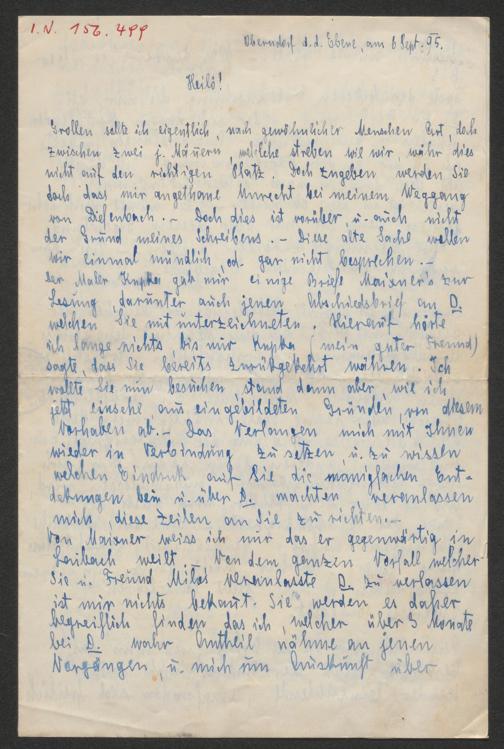 I.N. 156.499
Oberndorf a.d. Ebene, am 6 Sept. 95.
Heilö!
Grollen sollte ich eigentlich, nach gewöhnlicher Menschen Art, doch
zwischen zwei j. Männern, welche streben wie wir, währ dies
nicht auf den richtigen Platz. Doch zugeben werden Sie
doch dass mir angethane Unrecht bei meinem Weggang
von Diefenbach. – Doch dies ist vorüber, u. auch nicht
der Grund meines Schreibens. – Diese alte Sache wollen
wir einmal mündlich, od. gar nicht besprechen. –
Der Maler Kupka gab mir einige Briefe Maixner's zur
Lesung darunter auch jenen Abschiedsbrief an D.
welchen Sie mit unterzeichneten. Hierauf hörte
ich lange nichts, bis mir Kupka (mein guter Freund)
sagte, dass Sie bereits zurükgekehrt währen. Ich
wollte Sie nun besuchen, stand dann aber, wie ich
jetzt einsehe, aus eingebildeten Gründen, von diesem
Vorhaben ab. – Das Verlangen mich mit Ihnen
wieder in Verbindung zu setzen, u. zu wissen
welchen Eindruk auf Sie die manigfachen Ent-
dekungen beim u. über D. machten veranlassen
mich, diese Zeilen an Sie zu richten. –
Von Maixner weiss ich nur das er gegenwärtig in
Laibach weilt. Von dem ganzen Vorfall welcher
Sie u. Freund Miloš veranlasste D. zu verlassen
ist mir nichts bekannt. Sie werden es daher
begreiflich finden das ich welcher über 3 Monate
bei D. wahr Antheil nähme an jenen
Vorgängen, u. mich um Auskunft über